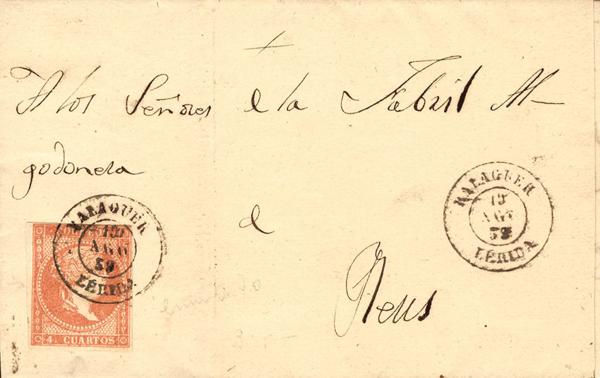 A los Señores de la Fabril Al-
godonera
a
Reus
BALAGUER
19
AGO
59
LÉRIDA
BALAGUER
19
AGO
LÉRIDA
4 CUARTOS